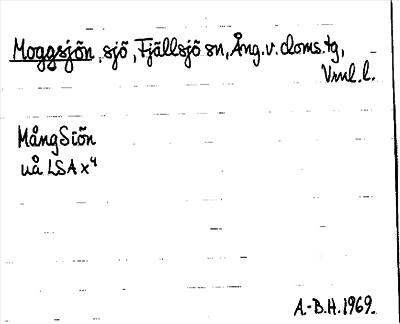 Moggsjön, sjö, Fjällsjö sn, Ång. v. doms. tg,
Vnl. l.
MångSiön
uå LSA x⁴
A.-B.H. 1969.